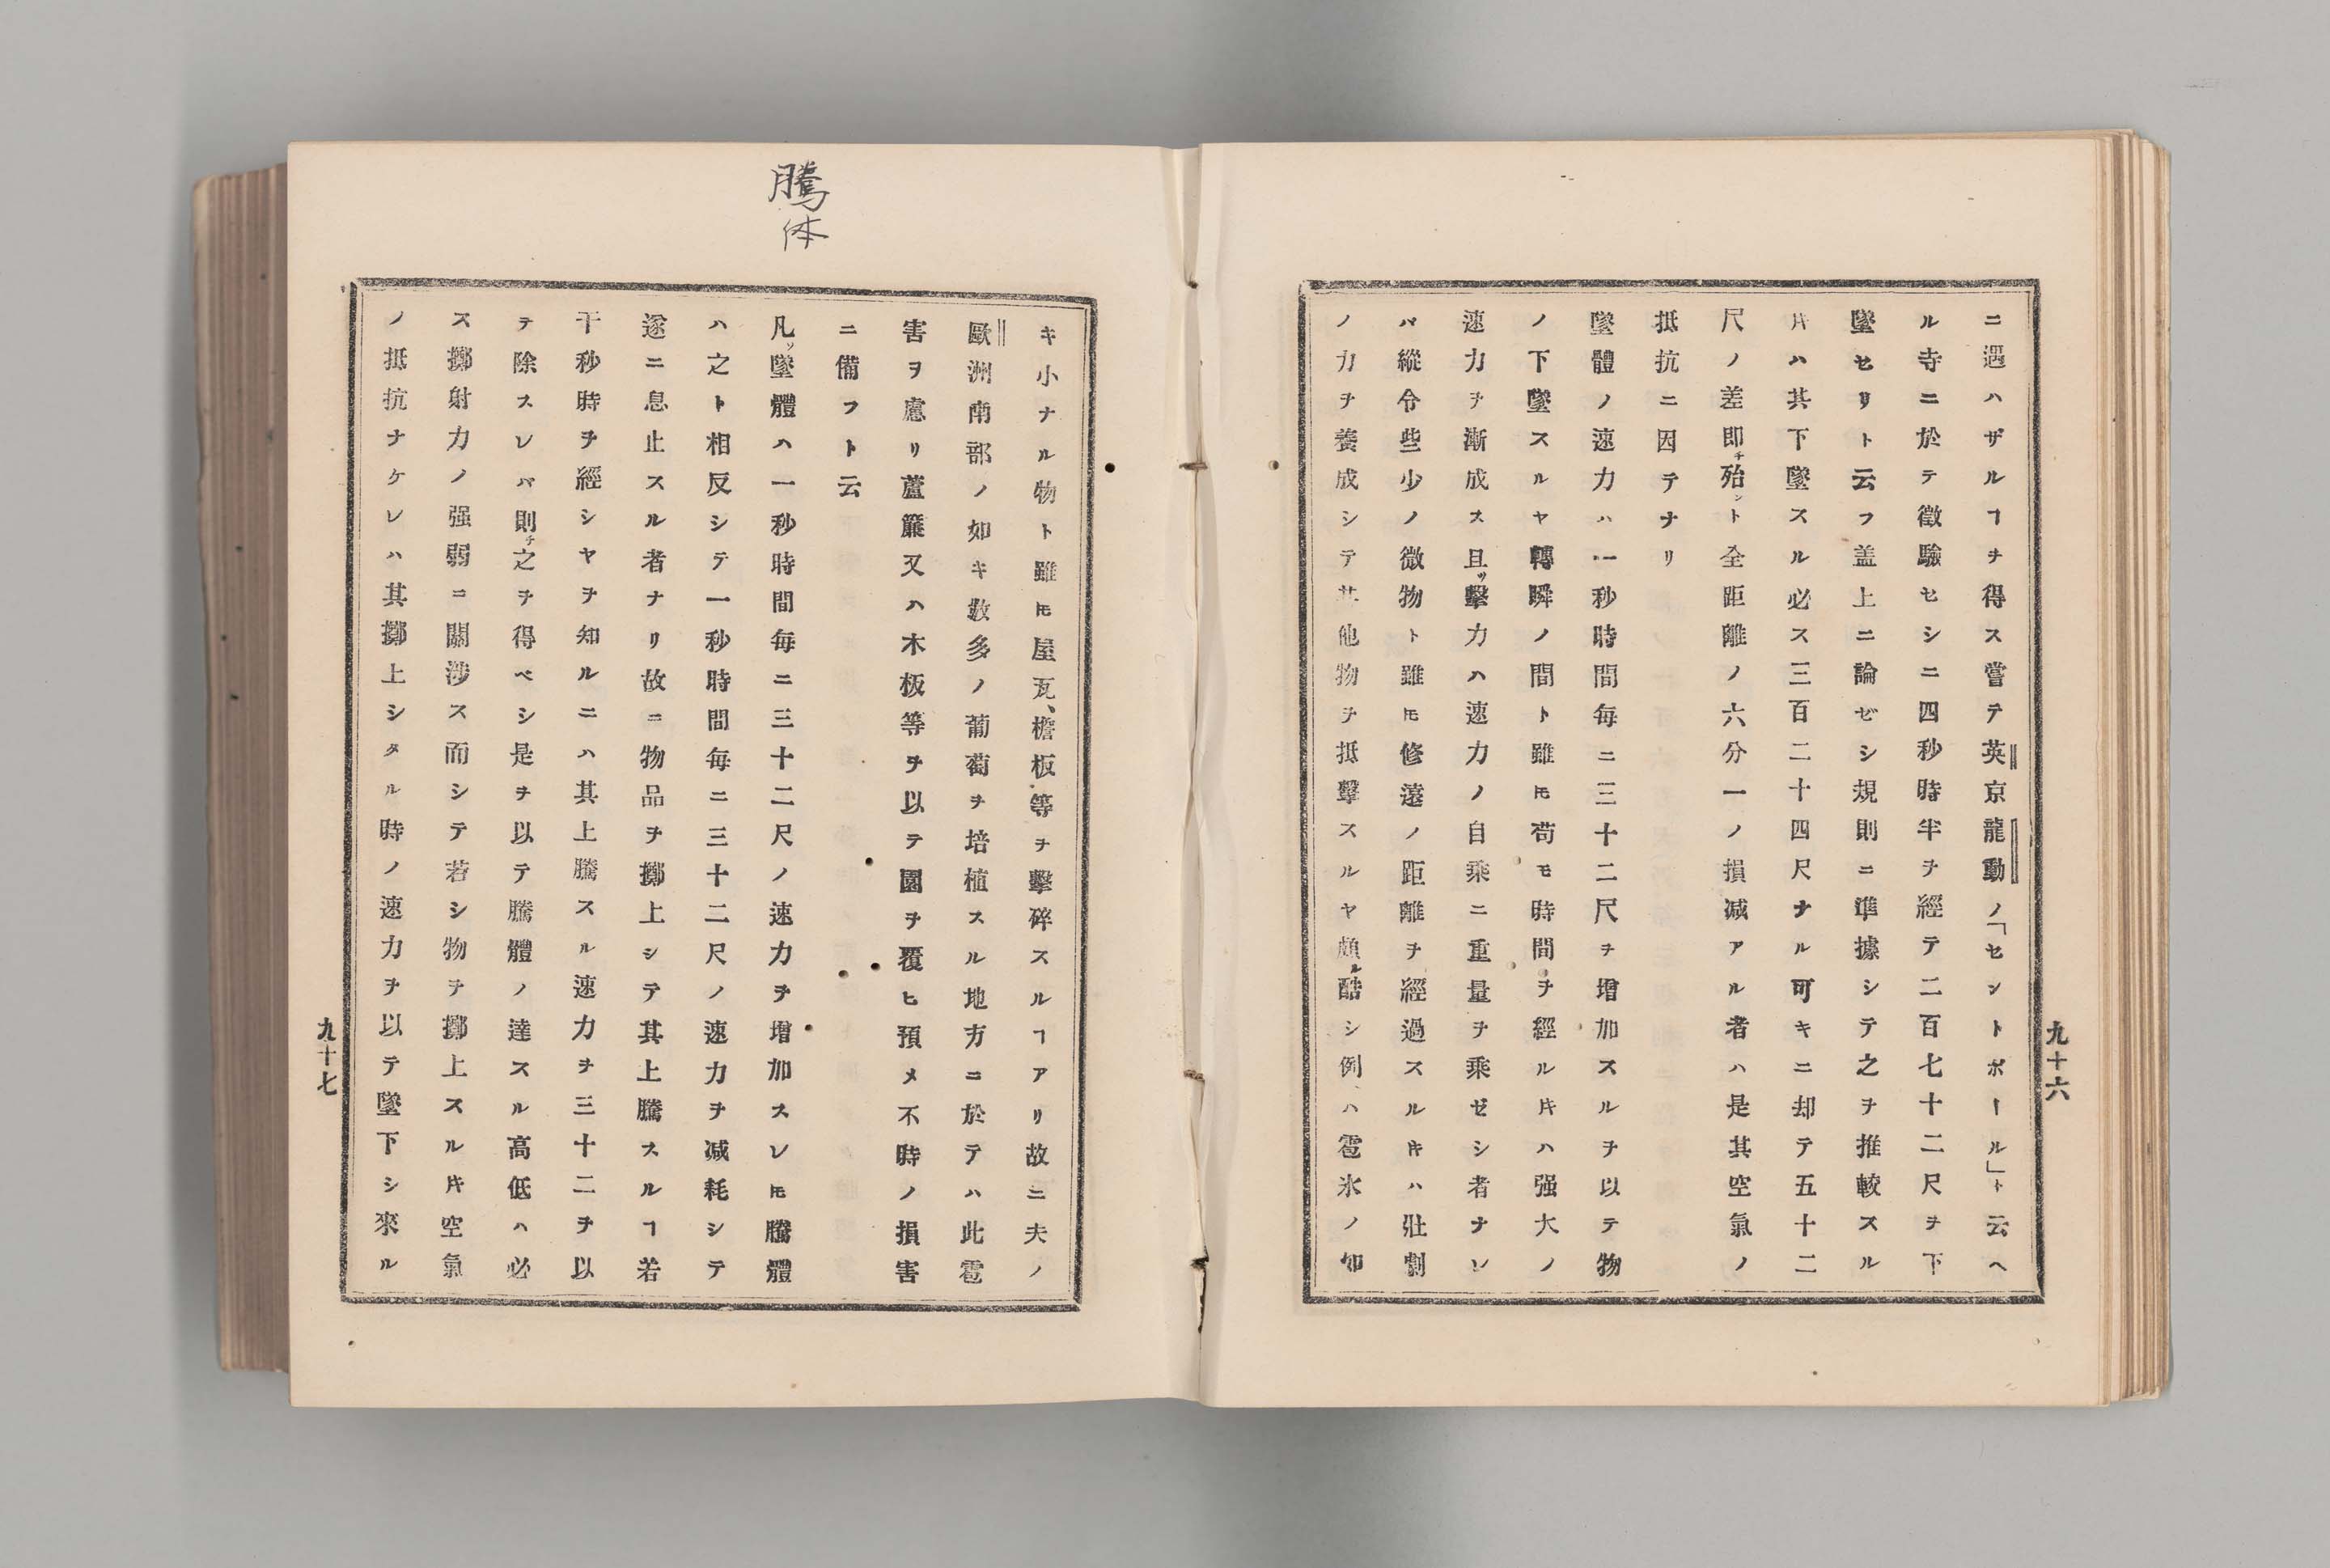 ニ遇ハザルヿヲ得ス嘗テ英京龍動ノ「セントポール」ト云ヘ
ル寺ニ於テ徵驗セシニ四秒時半ヲ經テ二百七十二尺ヲ下
墜セリト云フ盖上ニ論ゼシ規則ニ準據シテ之ヲ推較スル
𪜈ハ其下墜スル必ス三百二十四尺ナル可キニ却テ五十二
尺ノ差即チ殆ント全距離ノ六分一ノ損減アル者ハ是其空氣ノ
抵抗ニ因テナリ
墜體ノ速力ハ一秒時間每ニ三十二尺ヲ增加スルヲ以テ物
ノ下墜スルヤ轉瞬ノ間ト雖𪜈苟モ時間ヲ經ル𪜈ハ强大ノ
速力ヲ漸成ス且ツ擊力ハ速力ノ自乘ニ重量ヲ乘ゼシ者ナレ
バ縱令些少ノ微物ト雖𪜈修遠ノ距離ヲ經過スルキハ壯劇
ノ力ヲ養成シテ其他物ヲ抵擊スルヤ頗ル酷シ例ハ雹氷ノ如
九十六
騰体
キ小ナル物ト雖𪜈屋瓦、檐板等ヲ擊碎スルヿアリ故ニ夫ノ
歐洲南部ノ如キ數多ノ葡萄ヲ培植スル地方ニ於テハ此雹
害ヲ慮リ蘆簾又ハ木板等ヲ以テ園ヲ覆ヒ預メ不時ノ損害
ニ備フト云
凡ソ墜體ハ一秒時間每ニ三十二尺ノ速力ヲ增加スレ𪜈騰體
ハ之ト相反シテ一秒時間每ニ三十二尺ノ速力ヲ減耗シテ
遂ニ息止スル者ナリ故ニ物品ヲ擲上シテ其上騰スルヿ若
干秒時ヲ經シヤヲ知ルニハ其上騰スル速力ヲ三十二ヲ以
テ除スレバ則チ之ヲ得ベシ是ヲ以テ騰體ノ達スル高低ハ必
ス擲射力ノ强弱ニ關涉ス而シテ若シ物ヲ擲上スル𪜈空氣
ノ抵抗ナケレハ其擲上シタル時ノ速力ヲ以テ墜下シ來ル
九十七